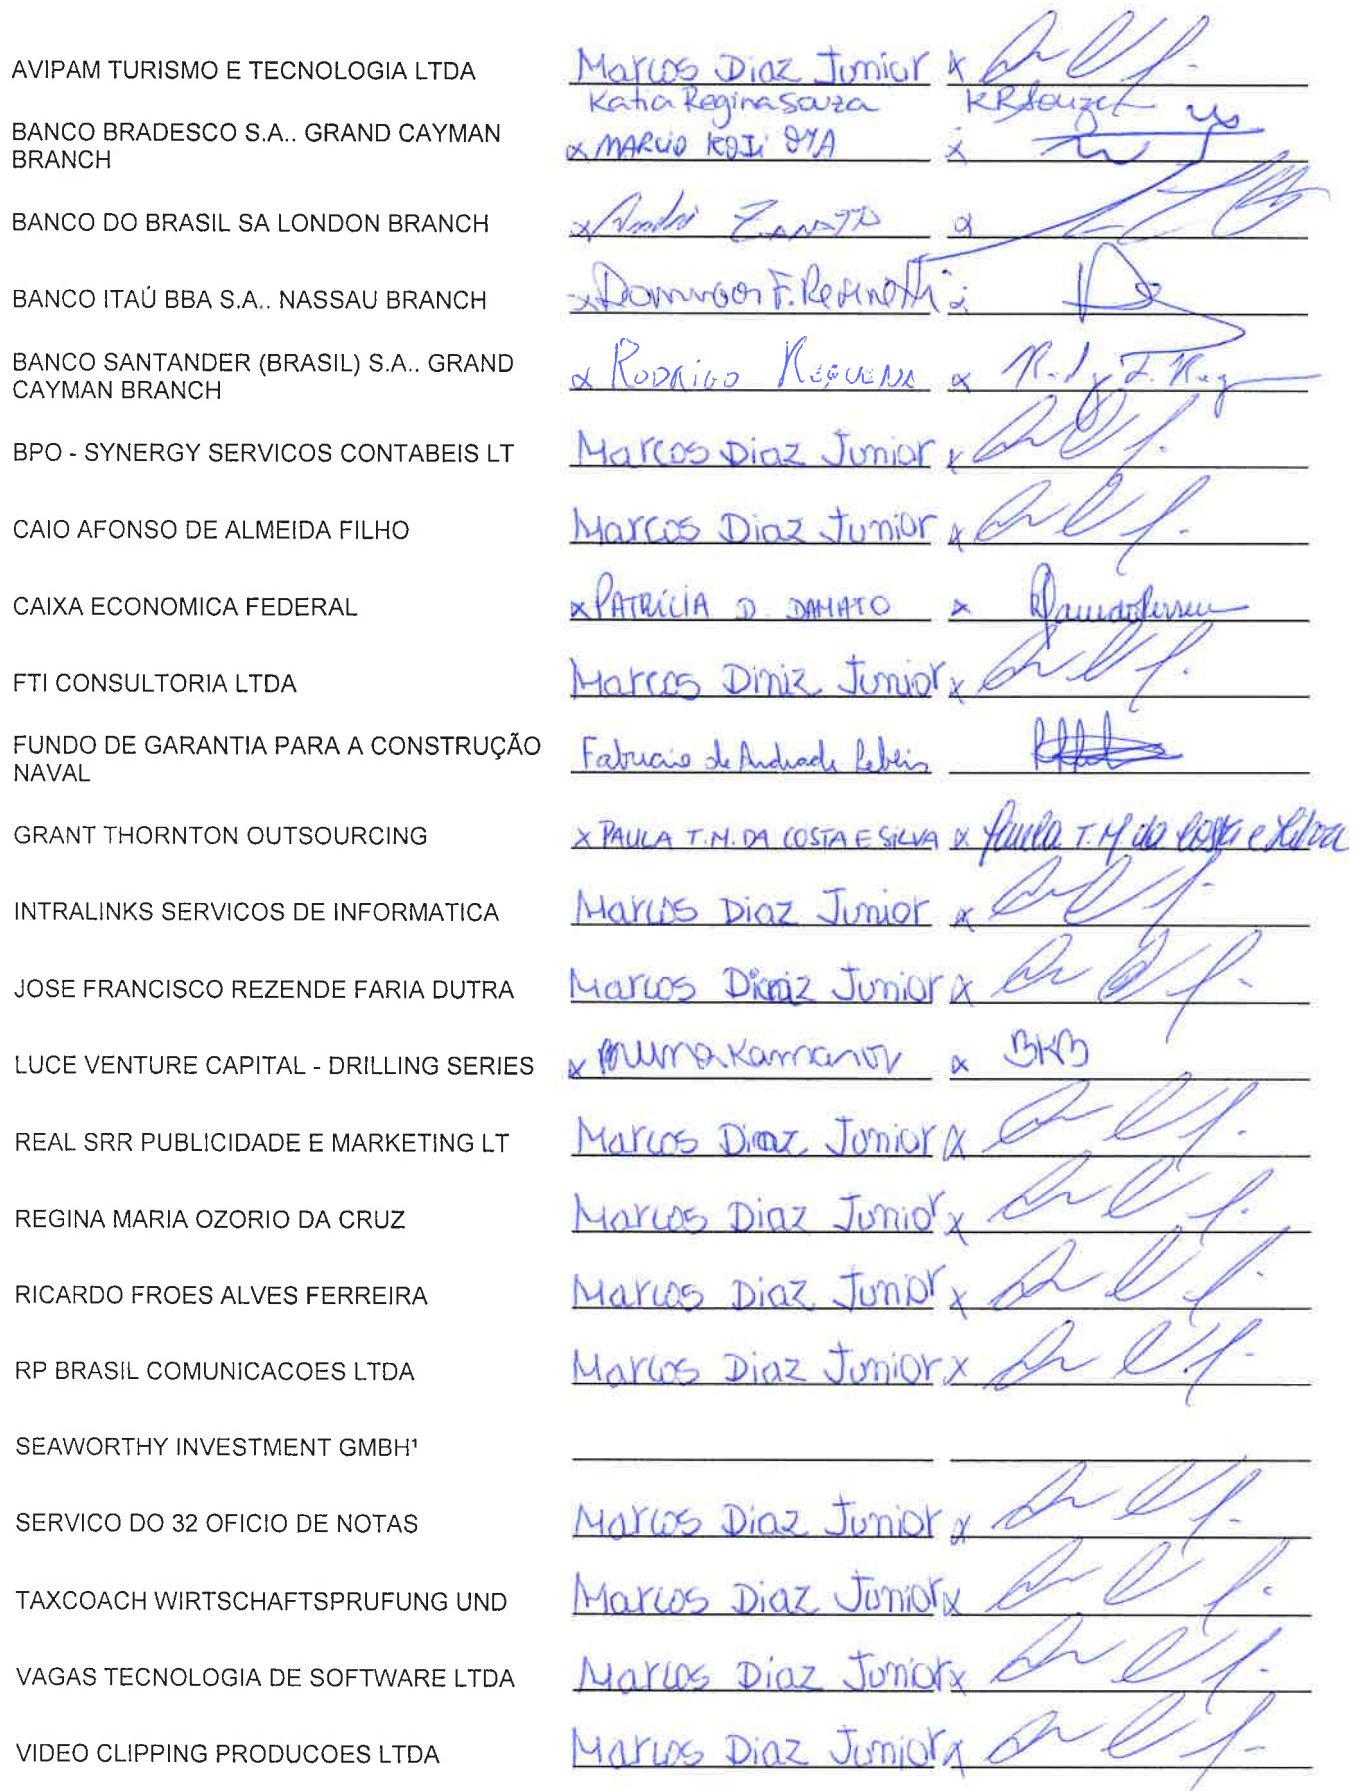 AVIPAM TURISMO E TECNOLOGIA LTDA Marcos Diaz Junior x
Katia Regina Souza KRSouza
BANCO BRADESCO S.A.. GRAND CAYMAN
BRANCH x MARCIO KOJI OYA x
BANCO DO BRASIL SA LONDON BRANCH x André ZANOTTO x
BANCO ITAÚ BBA S.A.. NASSAU BRANCH x Domingos F. x
BANCO SANTANDER (BRASIL) S.A.. GRAND
CAYMAN BRANCH x RODRIGO REQUENA x
BPO - SYNERGY SERVICOS CONTABEIS LT Marcos Diaz Junior x
CAIO AFONSO DE ALMEIDA FILHO Marcos Diaz Junior x
CAIXA ECONOMICA FEDERAL x PATRÍCIA D. DAMATO x
FTI CONSULTORIA LTDA Marcos Diniz Junior x
FUNDO DE GARANTIA PARA A CONSTRUÇÃO
NAVAL Fabricio de Andrade
GRANT THORNTON OUTSOURCING x PAULA T.M. DA COSTA E SILVA x Paula T. M da Costa e Silva
INTRALINKS SERVICOS DE INFORMATICA Marcos Diaz Junior x
JOSE FRANCISCO REZENDE FARIA DUTRA Marcos Junior x
LUCE VENTURE CAPITAL - DRILLING SERIES x Bruna x BKB
REAL SRR PUBLICIDADE E MARKETING LT Marcos Junior x
REGINA MARIA OZORIO DA CRUZ Marcos Diaz Junior x
RICARDO FROES ALVES FERREIRA Marcos Diaz Junior x
RP BRASIL COMUNICACOES LTDA Marcos Diaz Junior x
SEAWORTHY INVESTMENT GMBH¹
SERVICO DO 32 OFICIO DE NOTAS Marcos Diaz Junior x
TAXCOACH WIRTSCHAFTSPRUFUNG UND Marcos Diaz Junior x
VAGAS TECNOLOGIA DE SOFTWARE LTDA Marcos Diaz Junior x
VIDEO CLIPPING PRODUCOES LTDA Marcos Diaz Junior x